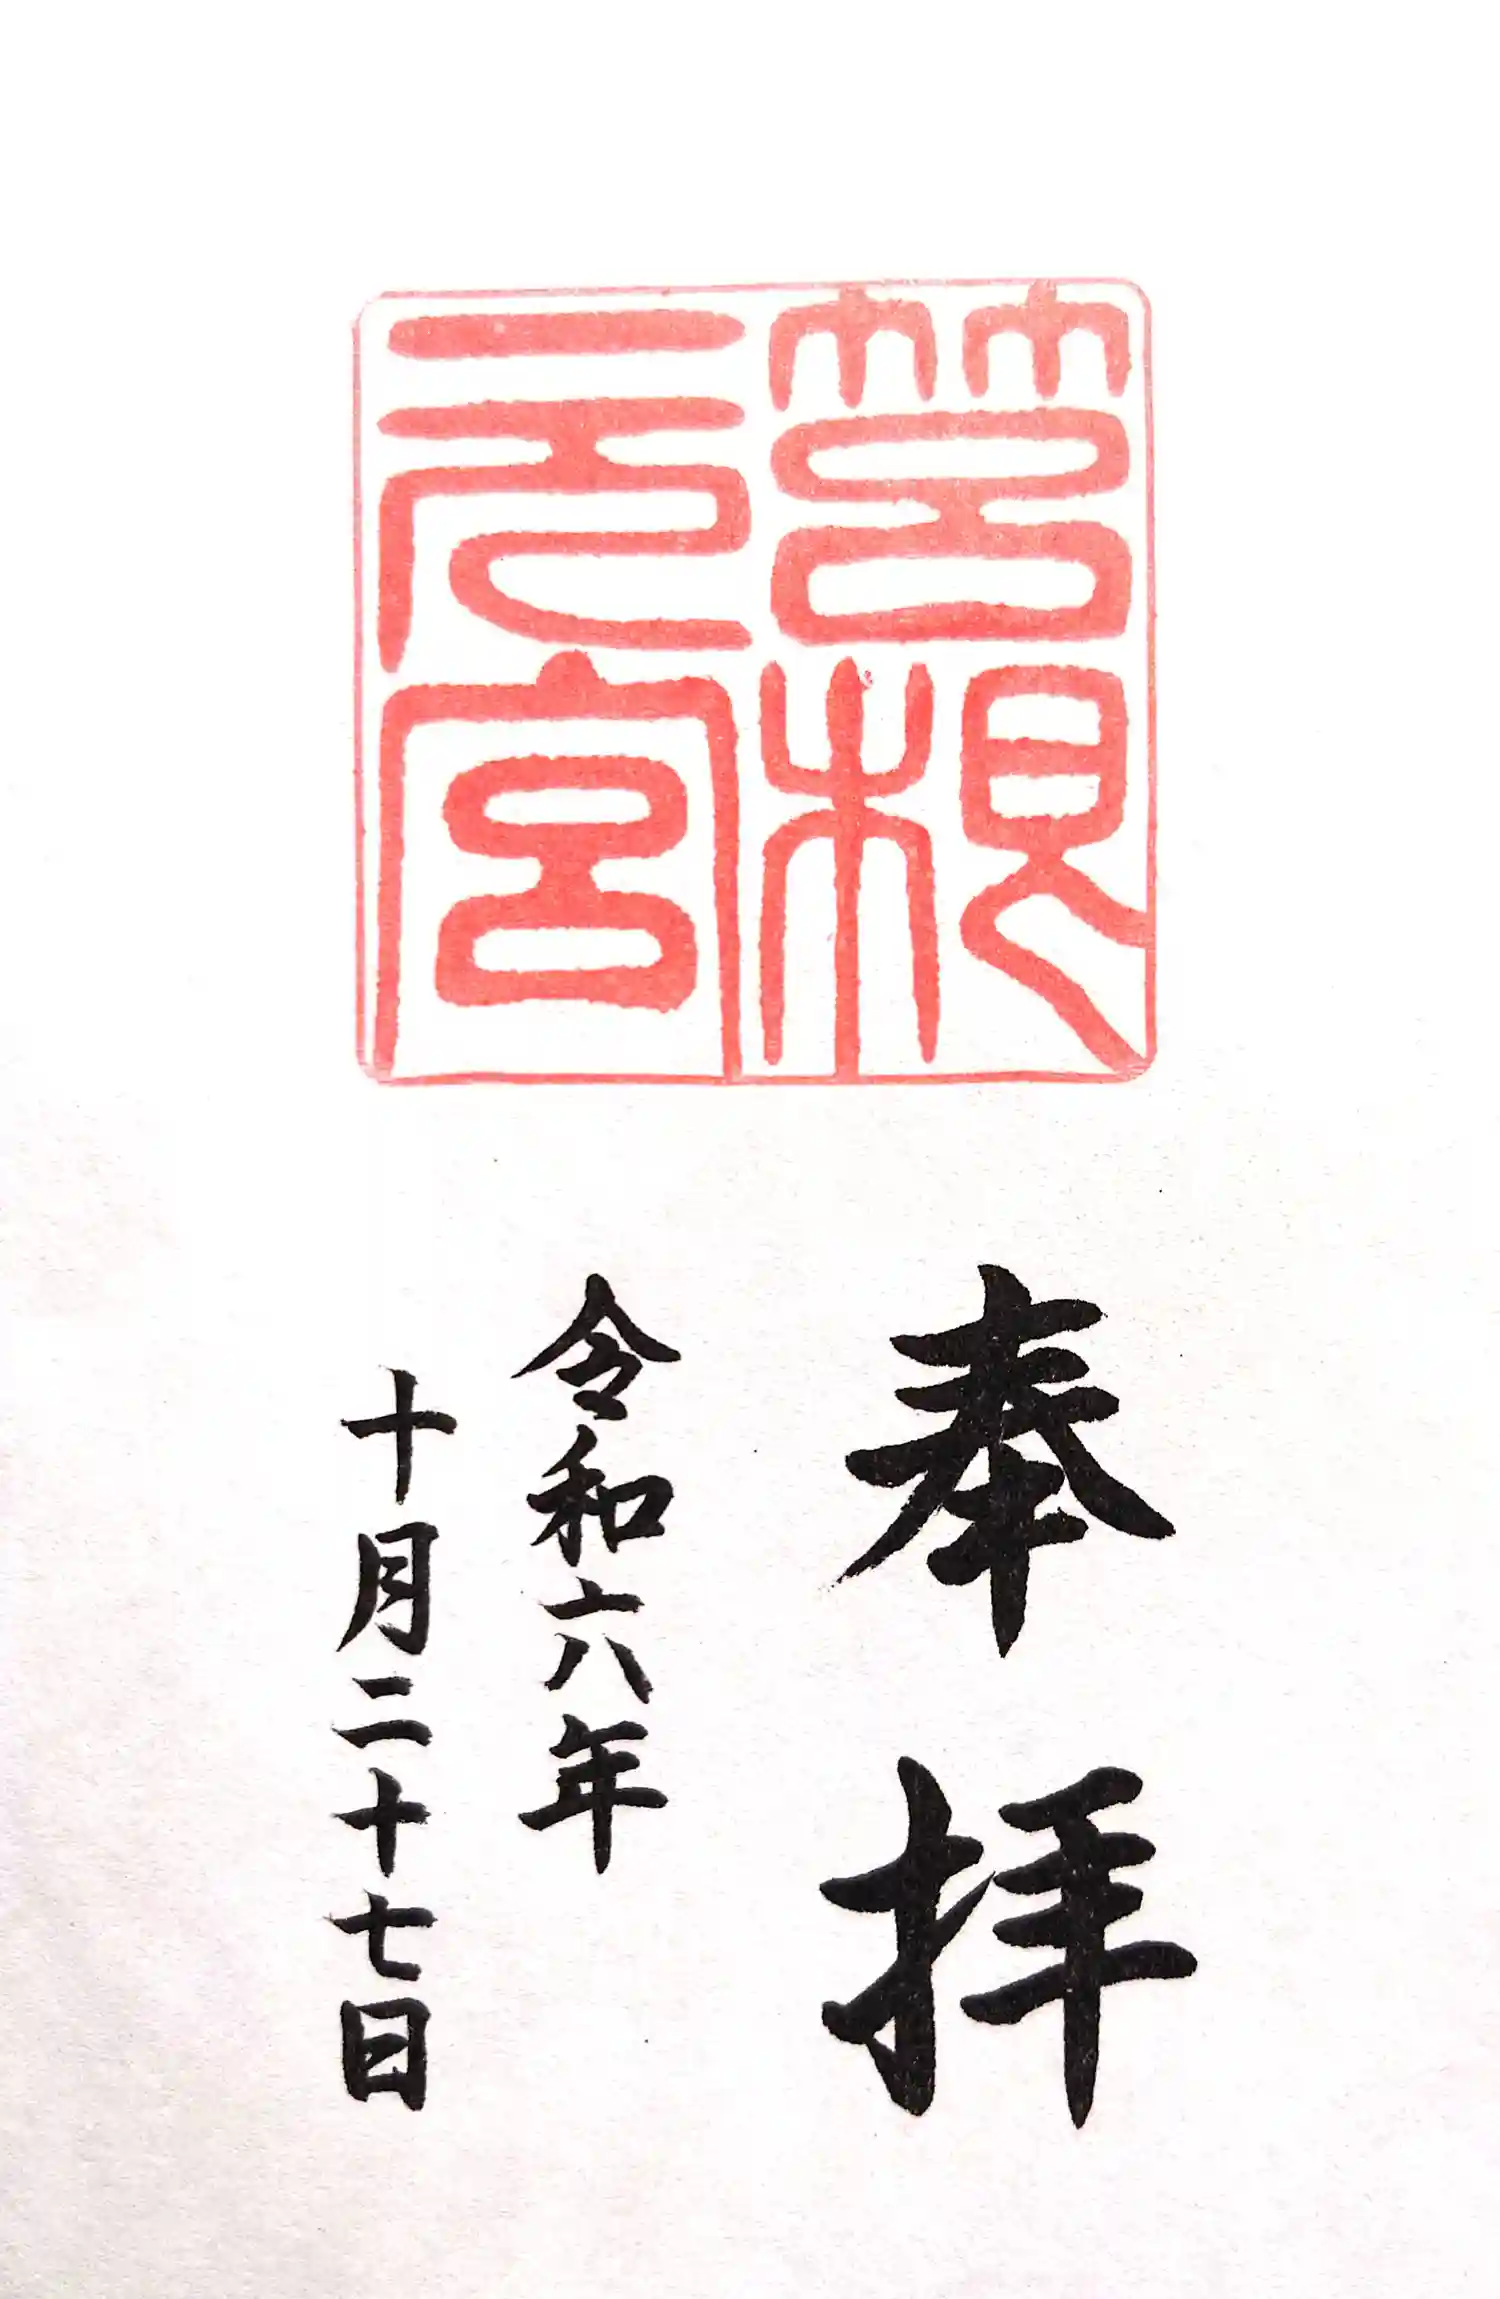 筥根
元宮
奉拝
令和六年
十月二十七日